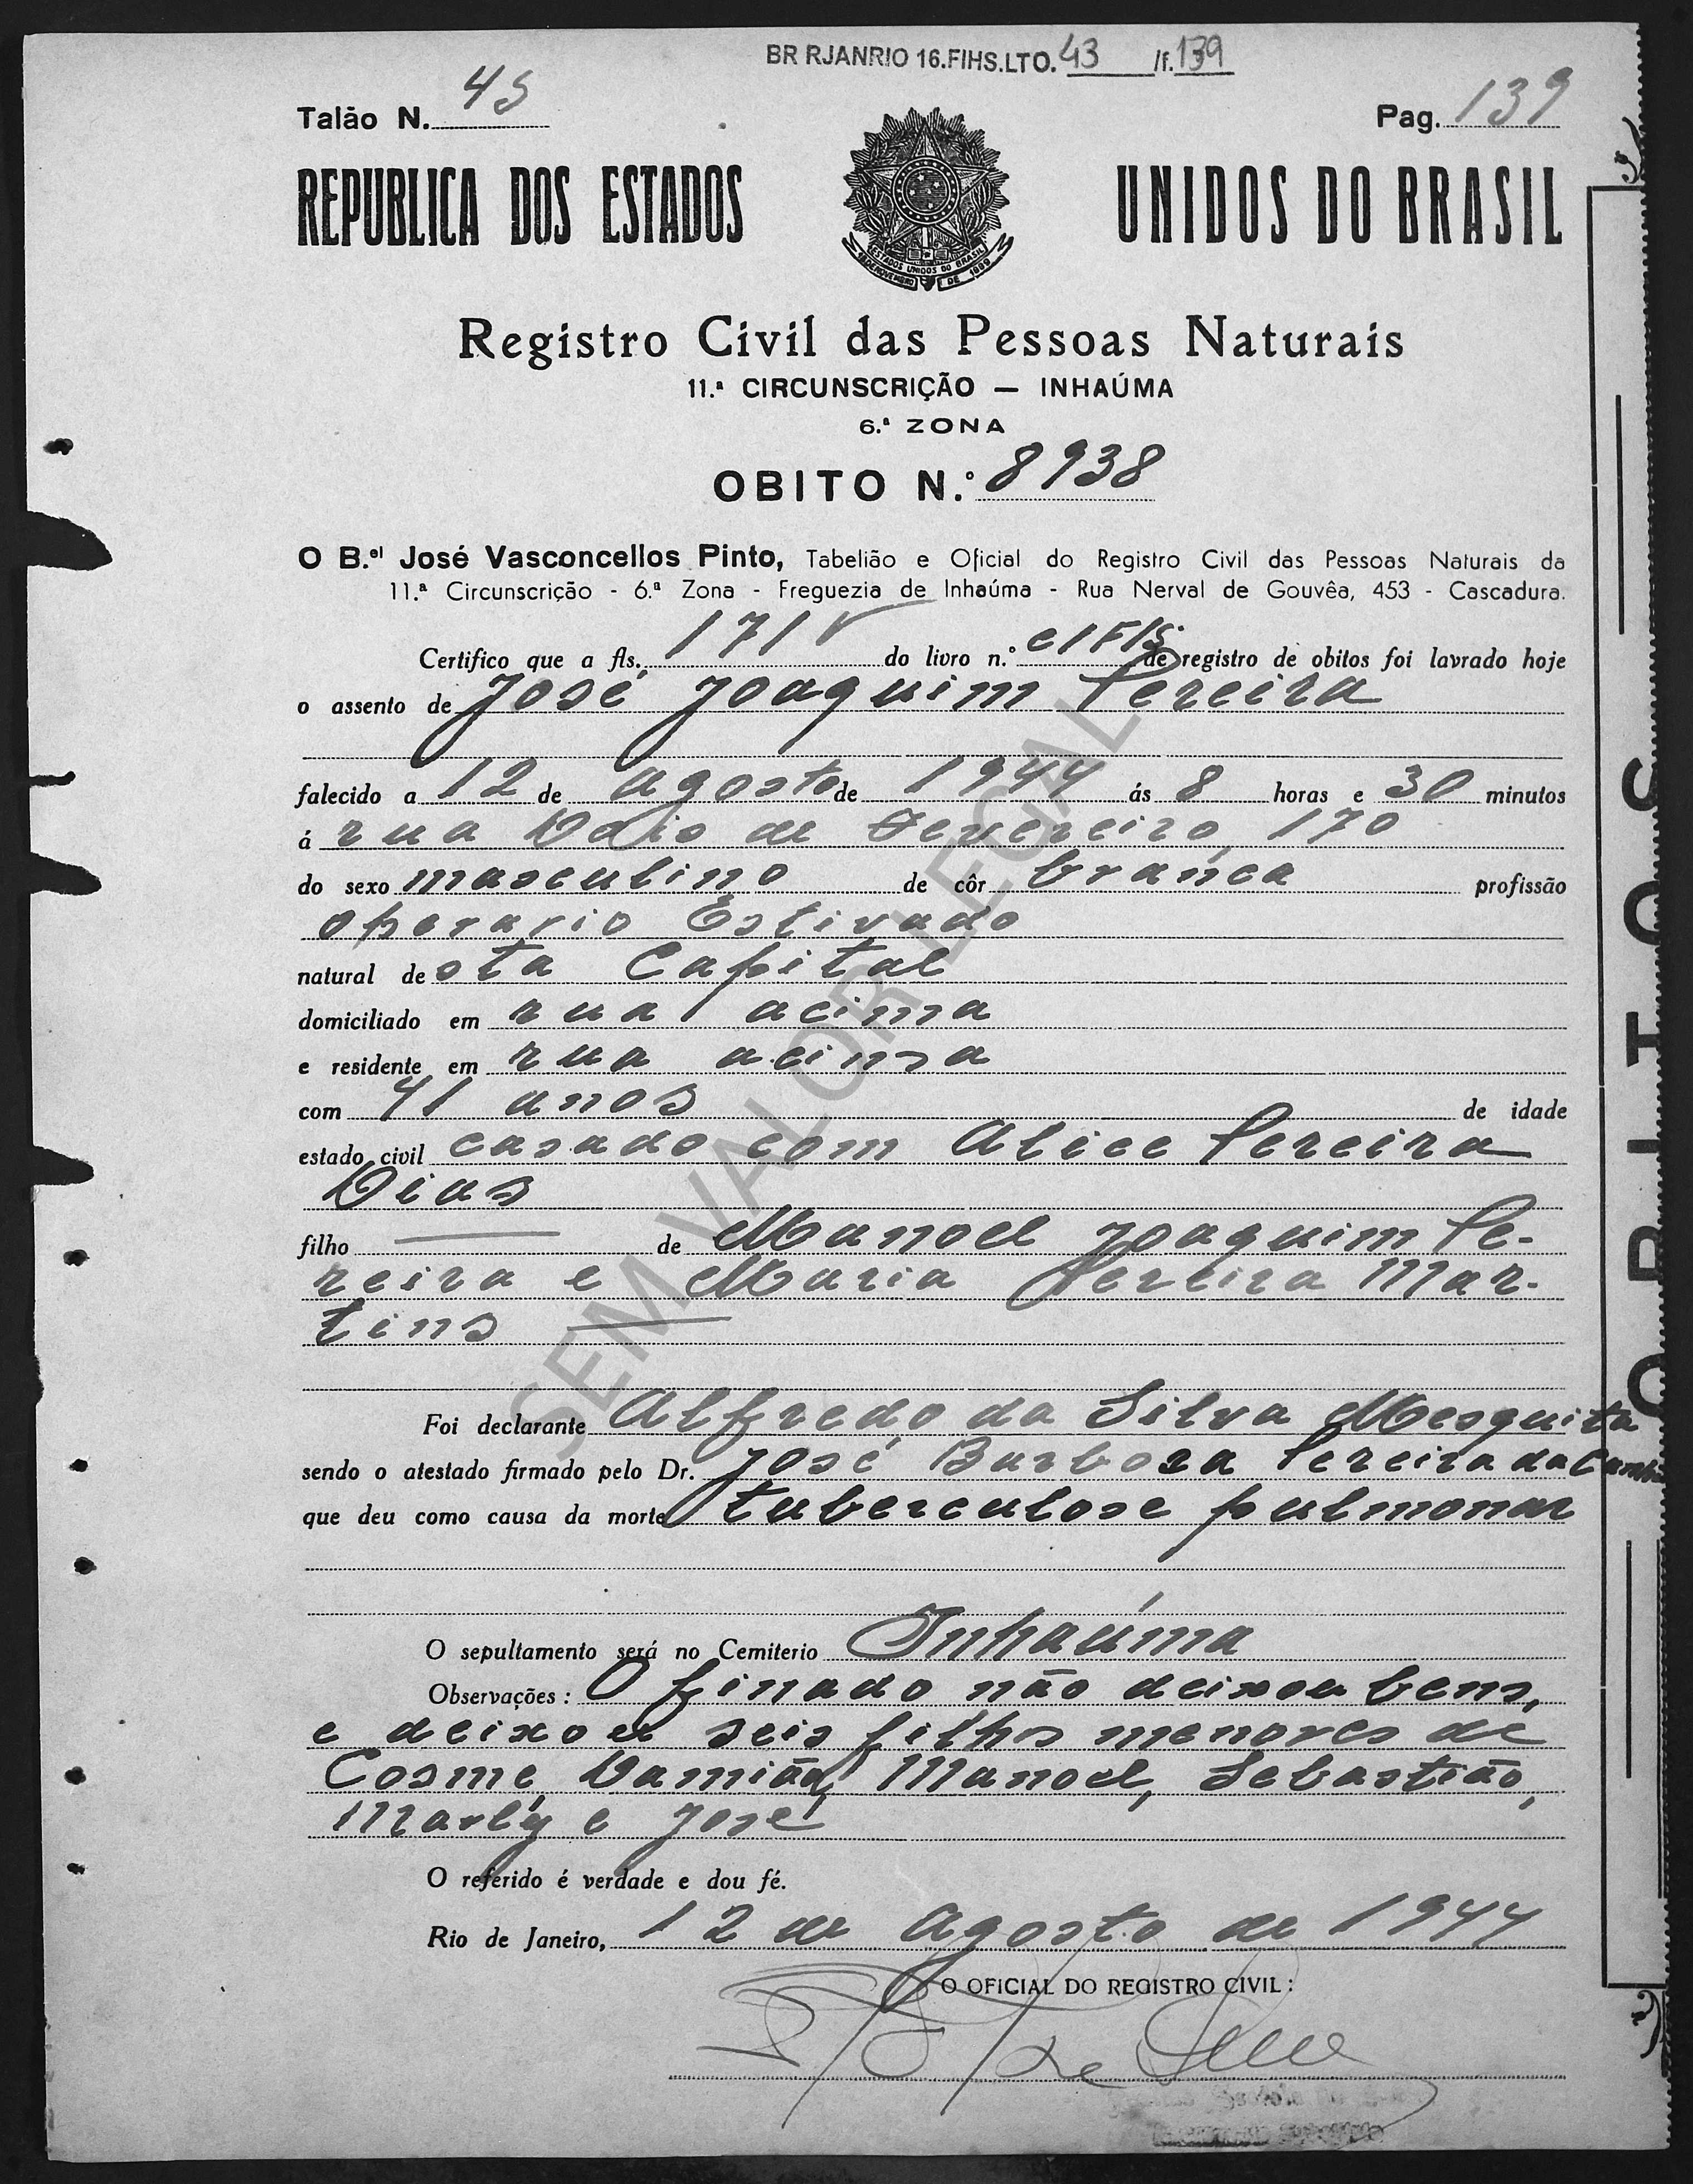 BR RJANRIO 16.FIHS.LTO. 43 /f. 139
Talão N. 45
Pag. 139
REPUBLICA DOS ESTADOS UNIDOS DO BRASIL
ESTADOS UNIDOS DO BRASIL
15 DE NOVEMBRO DE 1889
Registro Civil das Pessoas Naturais
11.ª CIRCUNSCRIÇÃO — INHAÚMA
6.ª ZONA
OBITO N.º 8938
O B.el José Vasconcellos Pinto, Tabelião e Oficial do Registro Civil das Pessoas Naturais da
11.ª Circunscrição - 6.ª Zona - Freguezia de Inhaúma - Rua Nerval de Gouvêa, 453 - Cascadura.
Certifico que a fls. 171 v do livro n.º de registro de obitos foi lavrado hoje
o assento de José Joaquim Pereira
falecido a 12 de agosto de 1944 ás 8 horas e 30 minutos
á rua Dois de Fevereiro, 170
do sexo masculino de côr branca profissão
operario Estivado
natural de sta Capital
domiciliado em rua acima
e residente em rua acima
com 41 anos de idade
estado civil casado com Alice Pereira
Dias
filho — de Manoel Joaquim Pe-
reira e Maria Pereira Mar-
tins —
Foi declarante Alfredo da Silva Mesquita
sendo o atestado firmado pelo Dr. José Barbosa Pereira da
que deu como causa da morte tuberculose pulmonar
O sepultamento será no Cemiterio Inhaúma
Observações: O finado não deixou bens,
e deixou seis filhos menores de
Cosme, Damião, Manoel, Sebastião,
Marly e José
O referido é verdade e dou fé.
Rio de Janeiro, 12 de Agosto de 1944
O OFICIAL DO REGISTRO CIVIL:
SEM VALOR LEGAL
OBITOS